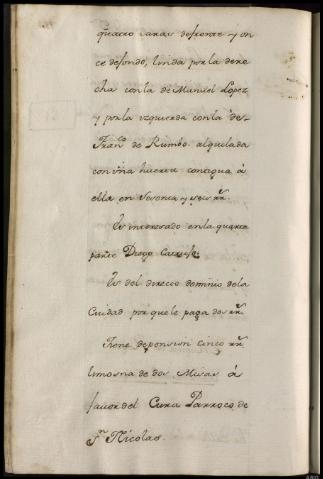 quatro varas defrente y on
ce defondo, linda por la dere
cha conla de Manuel Lopez
y por la izquierda conla de
Fran.co de Rumbo alquilada
con una huerta contigua à
ella en sesenta y seis rr.
Es interesado en la quarta
parte Diego
Es del directo dominio dela
Ciudad por que le paga dos rr.
Tiene depension cinco rr.
limosna de dos Misas à
favor del Cura Parroco de
S.n Nicolas.